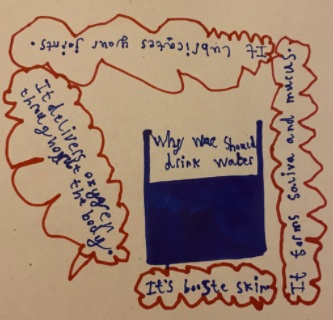 It lubricates your joints.
It delivers oxygen
throughout the body.
Why wee should
drink water
It forms saliva and mucus.
It's booste skin